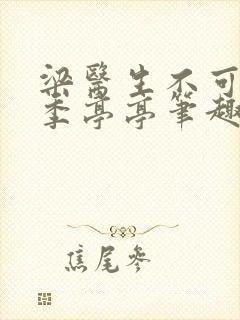 梁醫生不可
季亭亭筆趣
焦尾參